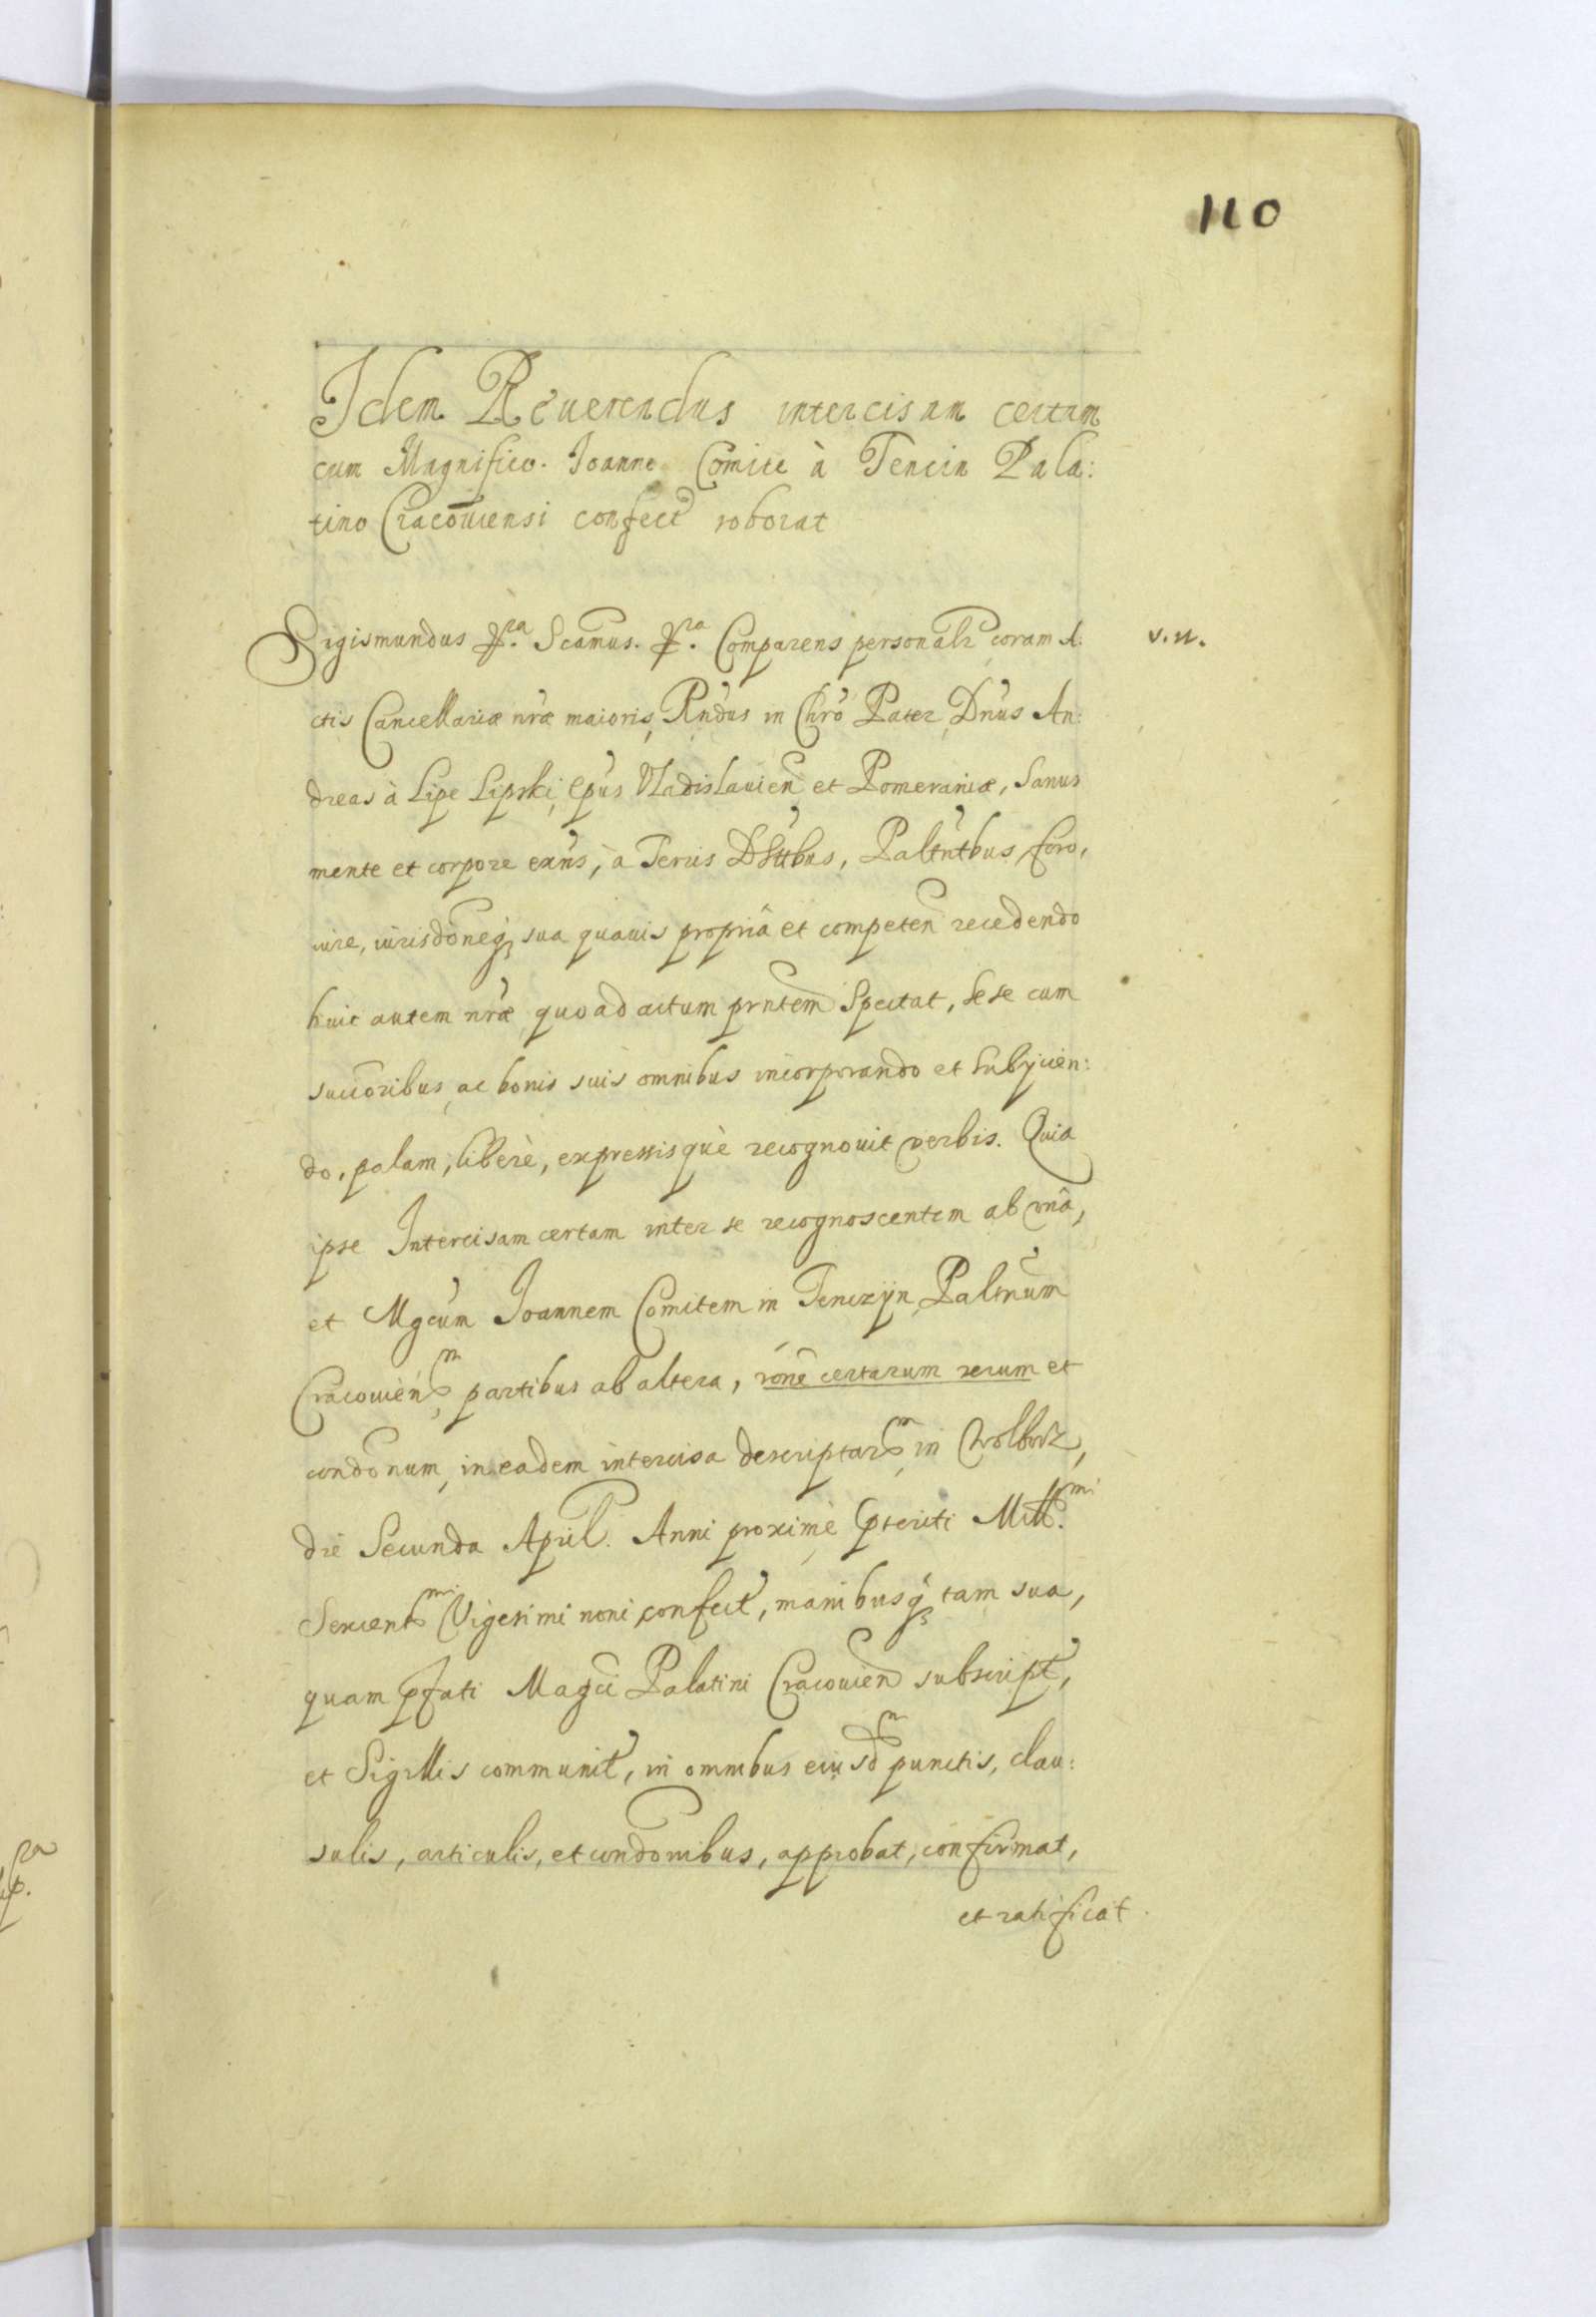 110
Idem Reuerendus intercisam certam
cum Magnifico. Ioanne Comite à Tencin Pala:
tino Cracouiensi confect roborat
Sigismundus &ra. Scamus. &ra. Comparens personalr coram A: v. n.
ctis Cancellariæ nræ maioris, Rndus in Chro Pater Dnus An:
dreas à Lipe Lipski, Epus Vladislauien et Pomeraniæ, Sanus
mente et corpore exns, à Terris Dstbus, Paltntbus foro,
iure, iurisdoneq sua quauis propriâ et competen recedendo
huic autem nræ quoad actum prntem Spectat, Se se cum
succoribus ac bonis suis omnibus incorporando et Subijcien:
do, palam, liberè, expressisquè recognouit verbis. Quia
ipse Intercisam certam inter se recognoscentem ab vnâ,
et Mgcum Ioannem Comitem in Tenczyn Paltnum
Cracouienm partibus ab altera, rone certarum rerum et
condonum, in eadem intercisa descriptarm in Wolborz,
die Secunda April. Anni proximè pteriti Mill.mi
Sexcentmi Vigesimi noni confect, manibusq tam sua,
quam pfati Magci Palatini Cracouien subscript,
et Sigillis communit, in omnibus eiusdm punctis, clau:
sulis, articulis, et condonibus, approbat, confirmat,
et ratificat.